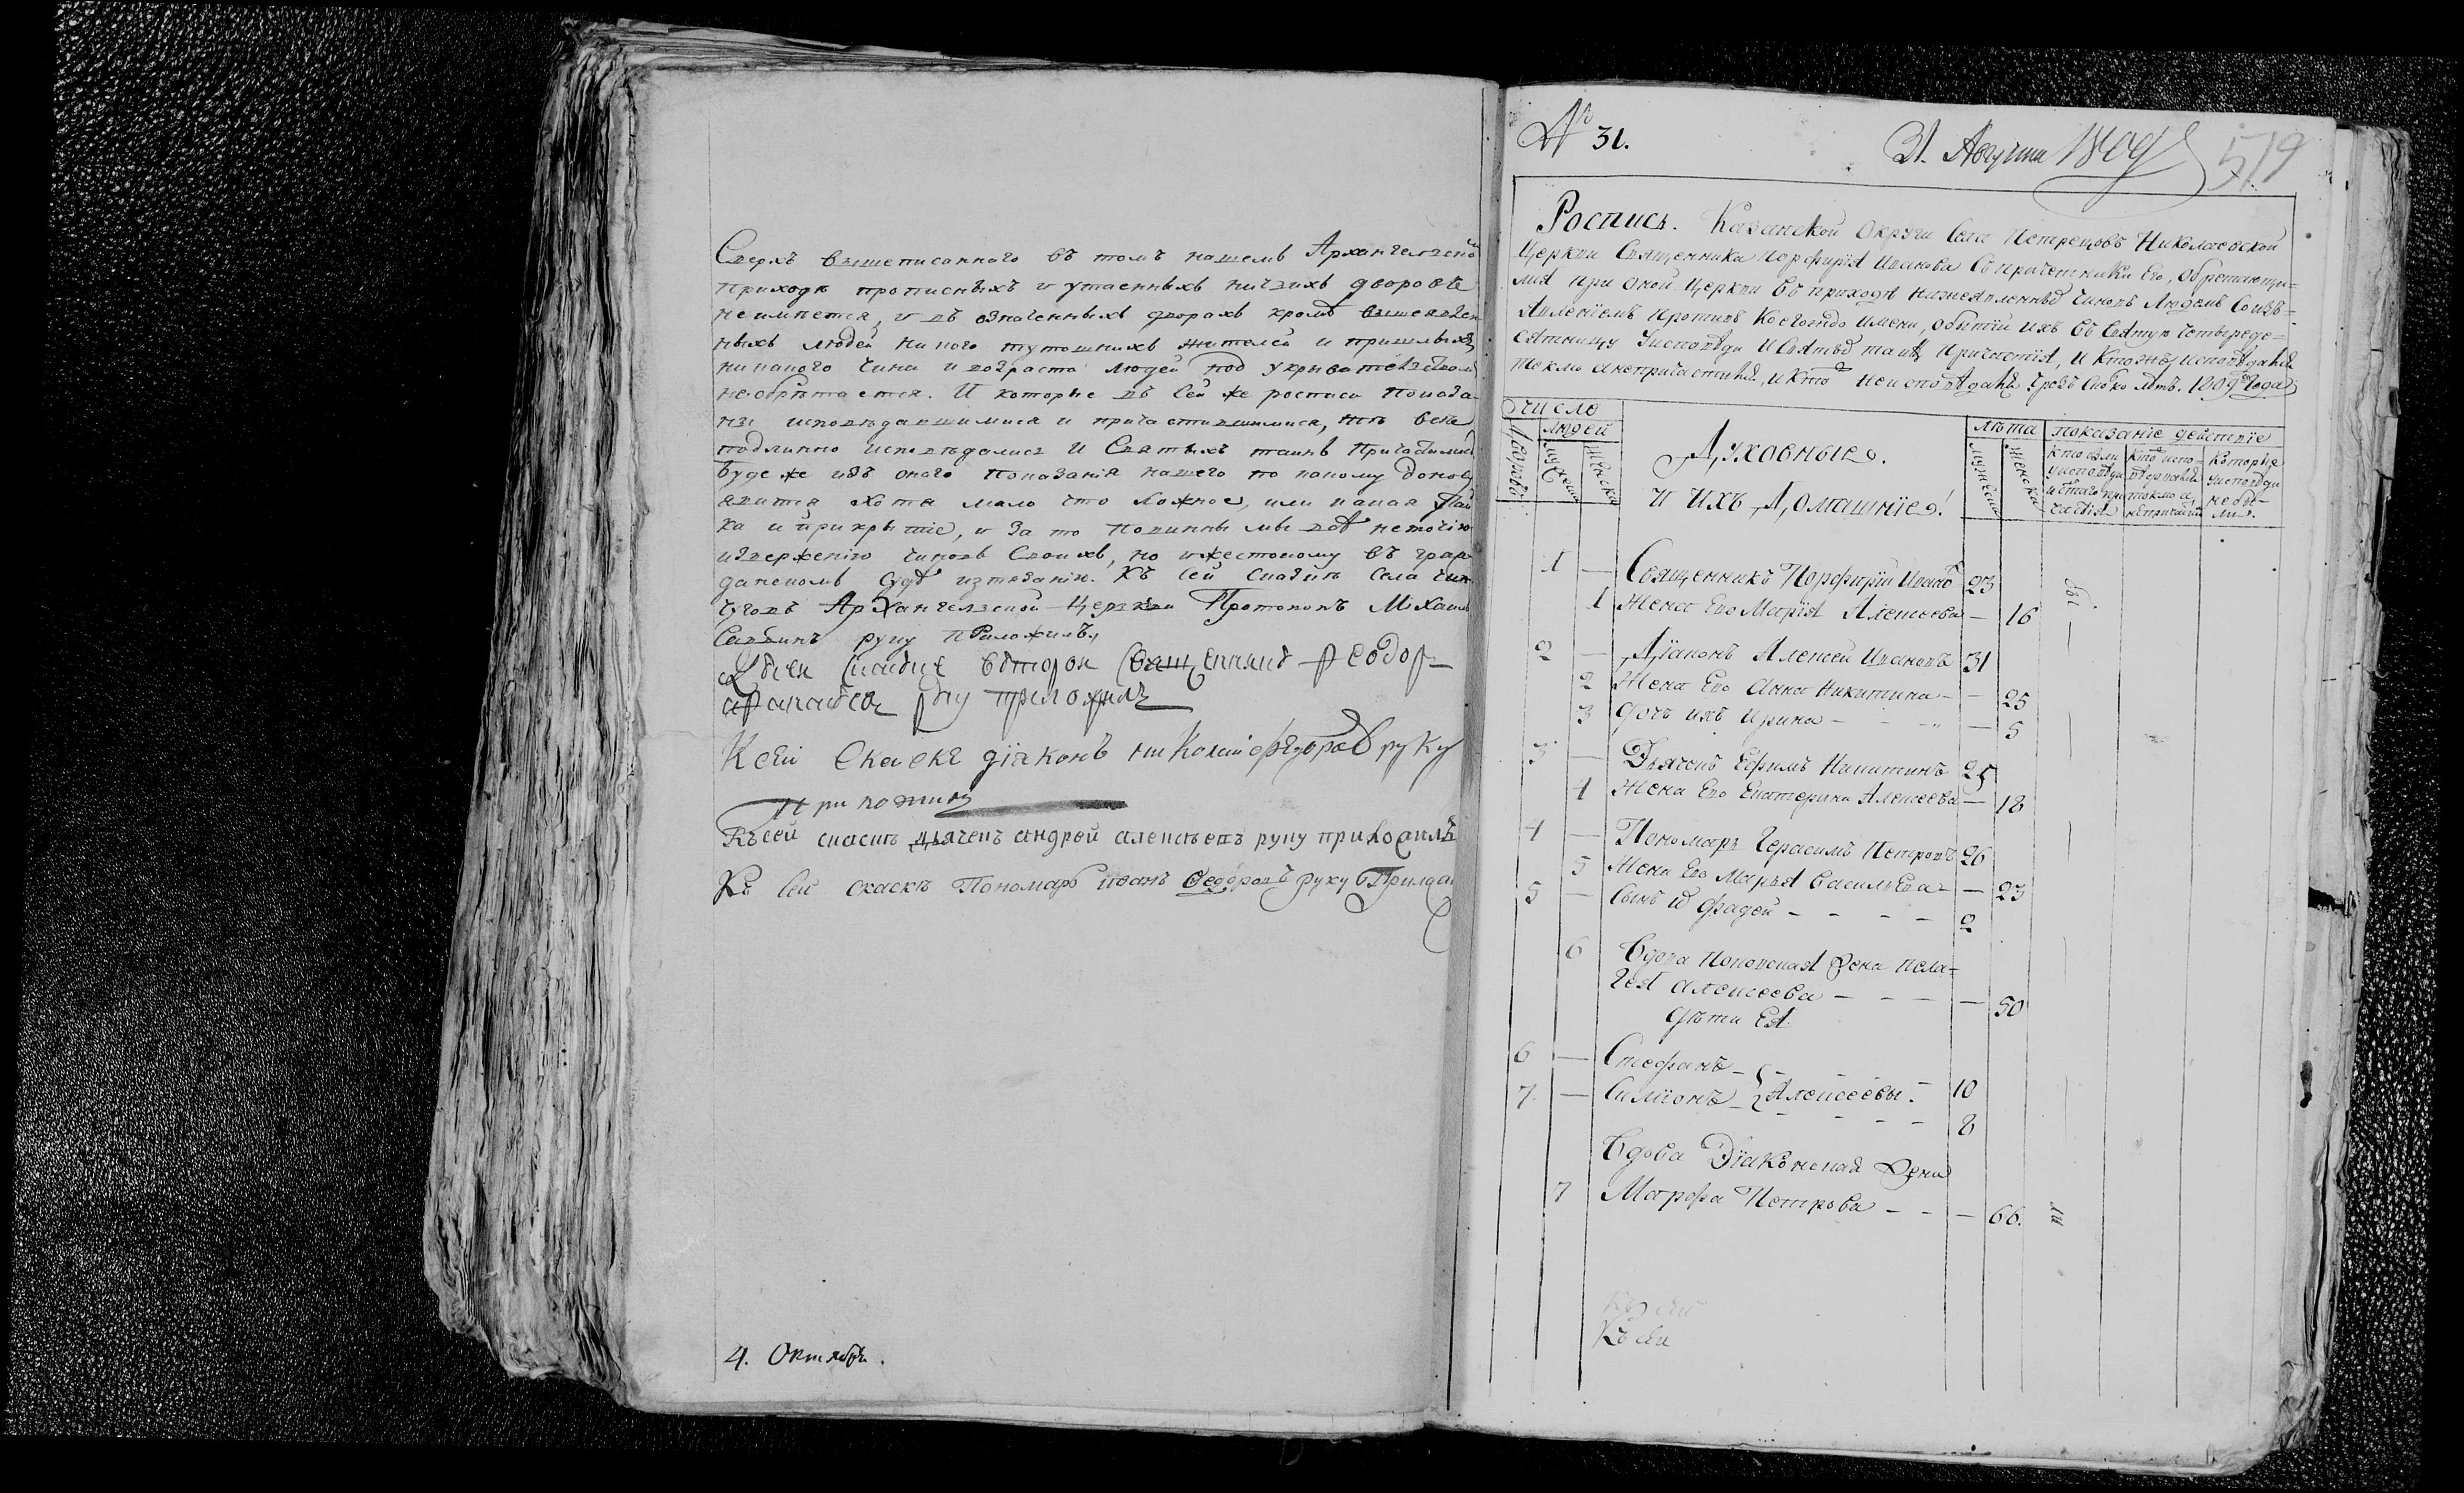 Сверхъ вышеписанного въ томъ нашемъ Архангелской
приходѣ прописныхъ и утаенныхъ ничьихъ дворовъ
не имѣется, и въ означенныхъ дворахъ кромѣ вышеявлен
ныхъ людей никого тутошнихъ жителей и пришлыхъ
никакого чина и возраста людей под укрывателством
не обрѣтается. И которые въ сей же росписи показа
ны исповѣдавшимися и причастившимися, тѣ всѣ
подлинно исповѣдались и Святыхъ таинъ причастились
буде же изъ оного показанія нашего по какому доносу
явится хотя мало что ложное, или какая
ка и прикрытіе, и за то повинны мы всѣ неточію
изверженію чиновъ своихъ, но и жестокому въ граж
данскомъ судѣ изтязанію. Къ сей сказкѣ села
Архангелзской церкви Протопопъ Михаилъ
руку приложилъ,
сказке второй священникъ Феодор
руку приложилъ
К сей скаске діаконъ николай федоровъ руку
приложилъ
Къ сей сказкѣ дьячекъ андрей алексѣевъ руку приложилъ
Къ сей скаскѣ Пономарь иванъ Федоровъ руку
4. Октября.
№ 31.
31. Августа 1809
519
Роспись. Казанской округи села Петрецовъ Николаевской
Церкви Священника Порфирія Иванова съ причетники его, обретающи=
мся при оной Церкви въ приходѣ нижеявленныхъ чиновъ людемъ со изъ=
явленіемъ противъ коегождо имени, о бытіи ихъ въ святую четыреде=
сятницу у исповѣди и святыхъ таинъ причастія, и кто жъ исповѣдался
токмо а не причастился, и кто не исповѣдался 1809 года
Число
людей
Дворовъ
мужеска
женска
Духовные.
и ихъ Домашніе.
лѣта
мужеска
женска
показаніе действіе
кто были у исповѣди и с̃таго причастія
Кто исповѣдались токмо а не причастились
Которые у исповѣди не были.
1 — Священникъ Порфирій Ивановъ 23
1 Жена Его Марія Алексеева — 16
2 — Діаконъ Алексей Ивановъ 31
2 Жена Его Анна Никитина — 25
3 Дочь ихъ Ирина — — 5
3 — Дьячекъ Ефимъ Никитинъ 25
4 Жена Его Екатерина Алексеева — 18
4 — Пономарь Герасимъ Петровъ 26
5 Жена Его Марья Васильева — 23
5 — Сынъ Фадей — — — — 2
6 Вдова Поповская жена Пела=
гея Алексеева — — — — 50
Дѣти Ея.
6 — Стефанъ — — 10
7. — Симіонъ — Алексеевы. — 8
Вдова Діаконская жена
7 Марфа Петрова — — — 66.
бы
ли
Къ сей
Къ сей